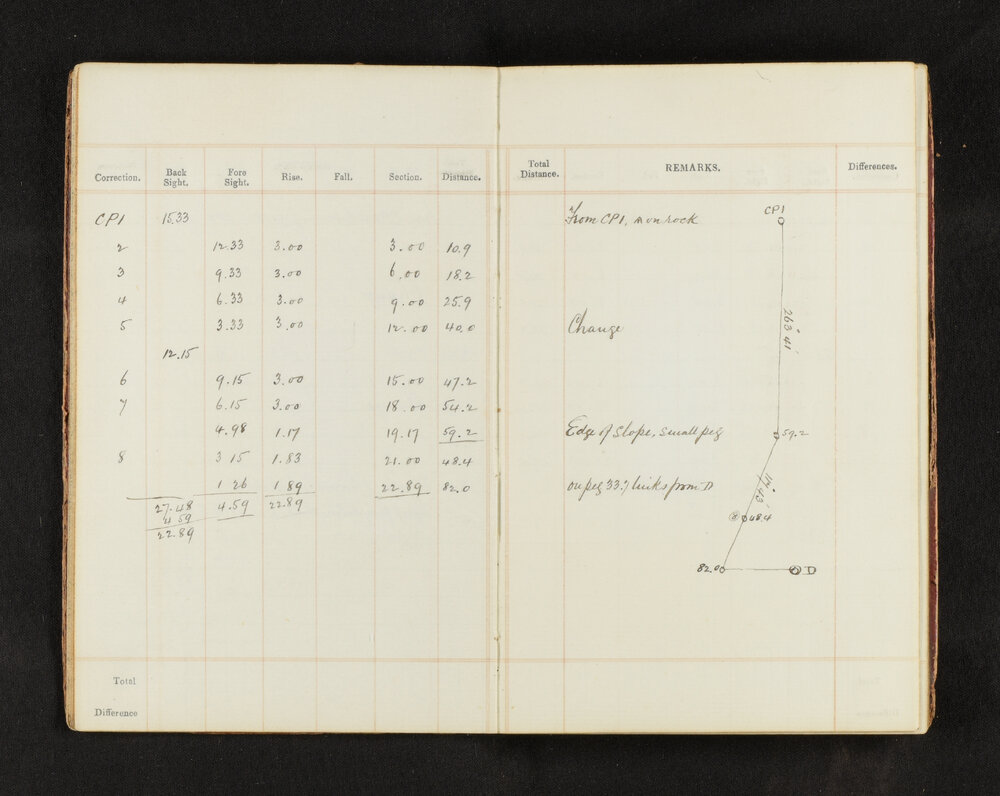 Correction. Back Sight. Fore Sight. Rise. Fall. Section. Distance. Total Distance. REMARKS. Differences.
CP1 15.33 From CP1, on rock CP1
2 12.33 3.00 3.00 10.9
3 9.33 3.00 6.00 18.2
4 6.33 3.00 9.00 25.9
5 3.33 3.00 12.00 40.0 Change 263° 41'
12.15
6 9.15 3.00 15.00 47.2
7 6.15 3.00 18.00 54.2
4.98 1.17 19.17 59.2 Edge of Slope, small peg 59.2
8 3 15 1.83 21.00 48.4
1 26 1 89 22.89 82.0 on peg 33.7 links from D
27.48 4.59 22.89
4 59 8 48.4
22.89
82.00 D
Total
Difference